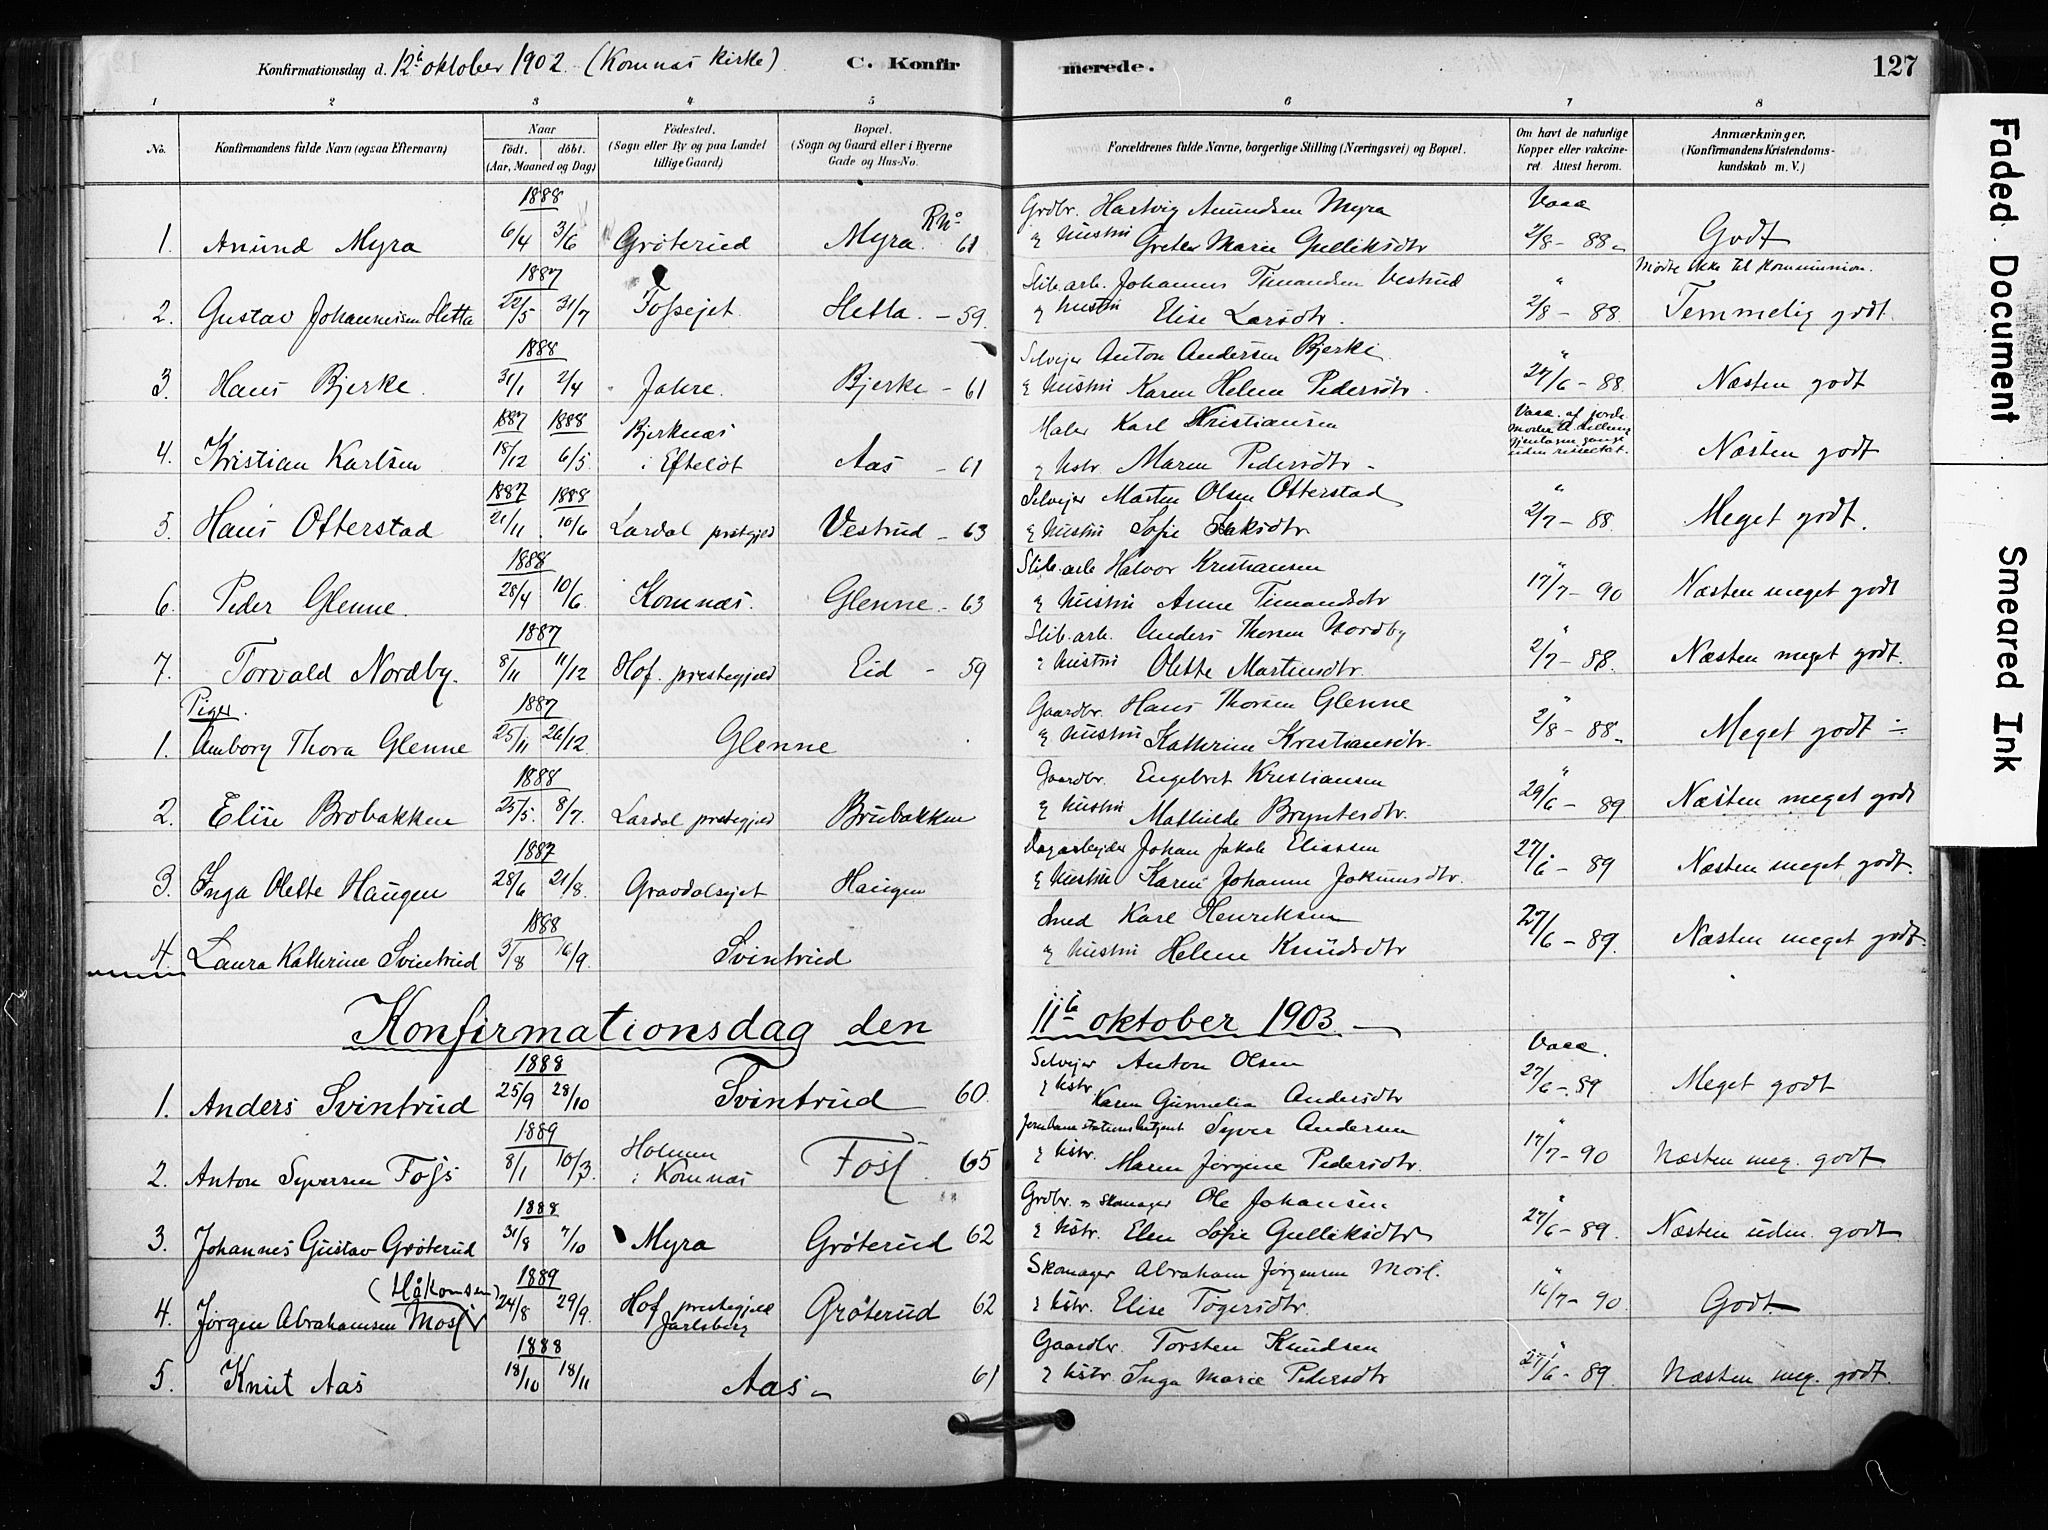 Konfirmationsdag d. 12te oktober 1902. (Komnæs kirke) C. Konfirmerede. 127
1 2 3 4 5 6 7 8
No. Konfirmandens fulde Navn (ogsaa Efternavn) Naar født. døbt. (Aar, Maaned og Dag) Fødested. (Sogn eller By og paa Landet tillige Gaard) Bopæl. (Sogn og Gaard eller i Byerne Gade og Hus-No. Forældrenes fulde Navne, borgerlige Stilling (Næringsvei) og Bopæl. Om havt de naturlige Kopper eller vakcineret. Attest herom. Anmærkninger. (Konfirmandens Kristendomskundskab m. V.)
1888 Grdbr. Hartvig Amundsen Myra Vacc
1. Amund Myra 6/4 3/6 Grøterud Myra 61 & hustru Grethe Marie Gulliksdtr 2/8 - 88 Godt
1887 Slib.arb. Johannes Timandsen Vestrud " Mødte ikke til kommunion.
2. Gustav Johannesen Hetta 22/5 31/7 Fossejet Hetta - 59. & hustru Elise Larsdtr. 2/8 - 88 Temmelig godt
1888 Selvejer Anton Andersen Bjerke "
3. Hans Bjerke. 31/1 2/4 Jahre. Bjerke - 61 & hustru Karen Helene Pedersdtr. 27/6 - 88 Næsten godt
1887 1888 Bjerknæs Maler Karl Kristiansen Vacc. af jordemoder gjentagne gange uden resultat.
4. Kristian Karlsen 18/12 6/5. i Efteløt Aas - 61 & hstr. Maren Pedersdtr - Næsten godt
1887 1888 Selvejer Morten Olsen Otterstad "
5. Hans Otterstad 21/11 10/6 Lardal prstgjeld Vestrud - 63 & hustru Sofie Isaksdtr 2/7 - 88. Meget godt.
1888 Slib.arb Halvor Kristiansen "
6. Peder Glenne. 28/4 10/6 Komnæs. Glenne - 63 & hustru Anne Timandsdtr 17/7 - 90 Næsten meget godt
1887 Slib.arb. Anders Thorsen Nordby "
7. Torvald Nordby. 8/11 11/12 Hof. prestegjeld Eid - 59 & hustru Olette Martinsdtr. 2/7 - 88. Næsten meget godt.
Piger. 1887 Gaardbr. Hans Thorsen Glenne "
1. Amborg Thora Glenne 25/11 26/12 Glenne & hustru Kathrine Kristiansdtr. 2/8 - 88 Meget godt
1888 Gaardbr. Engebret Kristiansen "
2. Elise Brobakken 25/5. 8/7. Lardal prestegjeld Brubakken & hustru Mathilde Bryntesdtr. 29/6 - 89 Næsten meget godt
1887 Dagarbejder Johan Jakob Eliassen
3. Inga Olette Haugen 28/6 21/8. Gravdalsejet Haugen & hustru Karen Johanne Jokumsdtr. 27/6 - 89 Næsten meget godt.
1888 Smed Karl Henriksen
4. Laura Kathrine Svintrud 3/8 16/9. Svintrud & hustru Helene Knudsdtr 27/6 - 89. Næsten meget godt
Konfirmationsdag den 11te oktober 1903.
1888 Selvejer Anton Olsen Vacc.
1. Anders Svintrud 25/9 28/10 Svintrud 60. & hstr. Karen Gunnelia Andersdtr 27/6 - 89 Meget godt
1889 Holmen Jernbanestationsbetjent Syver Andersen "
2. Anton Syversen Foss 8/1 10/3. i Komnæs Foss. 65 & hstr. Maren Jørgine Pedersdtr. 17/7 - 90 Næsten meg. godt
1888 Grdbr. & skomager Ole Johansen "
3. Johannes Gustav Grøterud 31/8 7/10 Myra Grøterud 62 & hstr. Elen Sofie Gulliksdtr 27/6 - 89. Næsten uden. godt
(Håkonsen) 1889 Skomager Abraham Jørgensen Moss. "
4. Jørgen Abrahamsen Moss 24/8 29/9. Hof prestegjeld Jarlsberg Grøterud 62 & hstr. Elise Tøgersdtr. 16/7 - 90 Godt
1888 Gaardbr. Torsten Knudsen "
5. Knut Aas 18/10 18/11 Aas 61 & hstr. Inga Marie Pedersdtr 27/6 - 89. Næsten meg. godt.
Faded Document
Smeared Ink